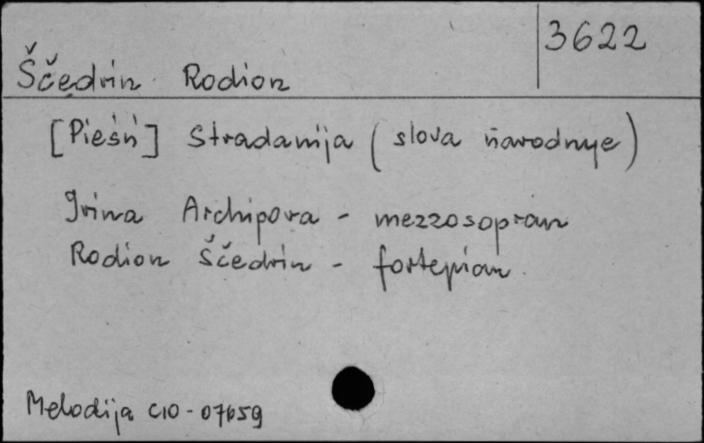 3622
Ščedrin Rodion
[Pieśń] Stradanija (slova narodnye)
Irina Archipova - mezzosopran
Rodion Ščedrin - fortepian
Melodija C10-07659